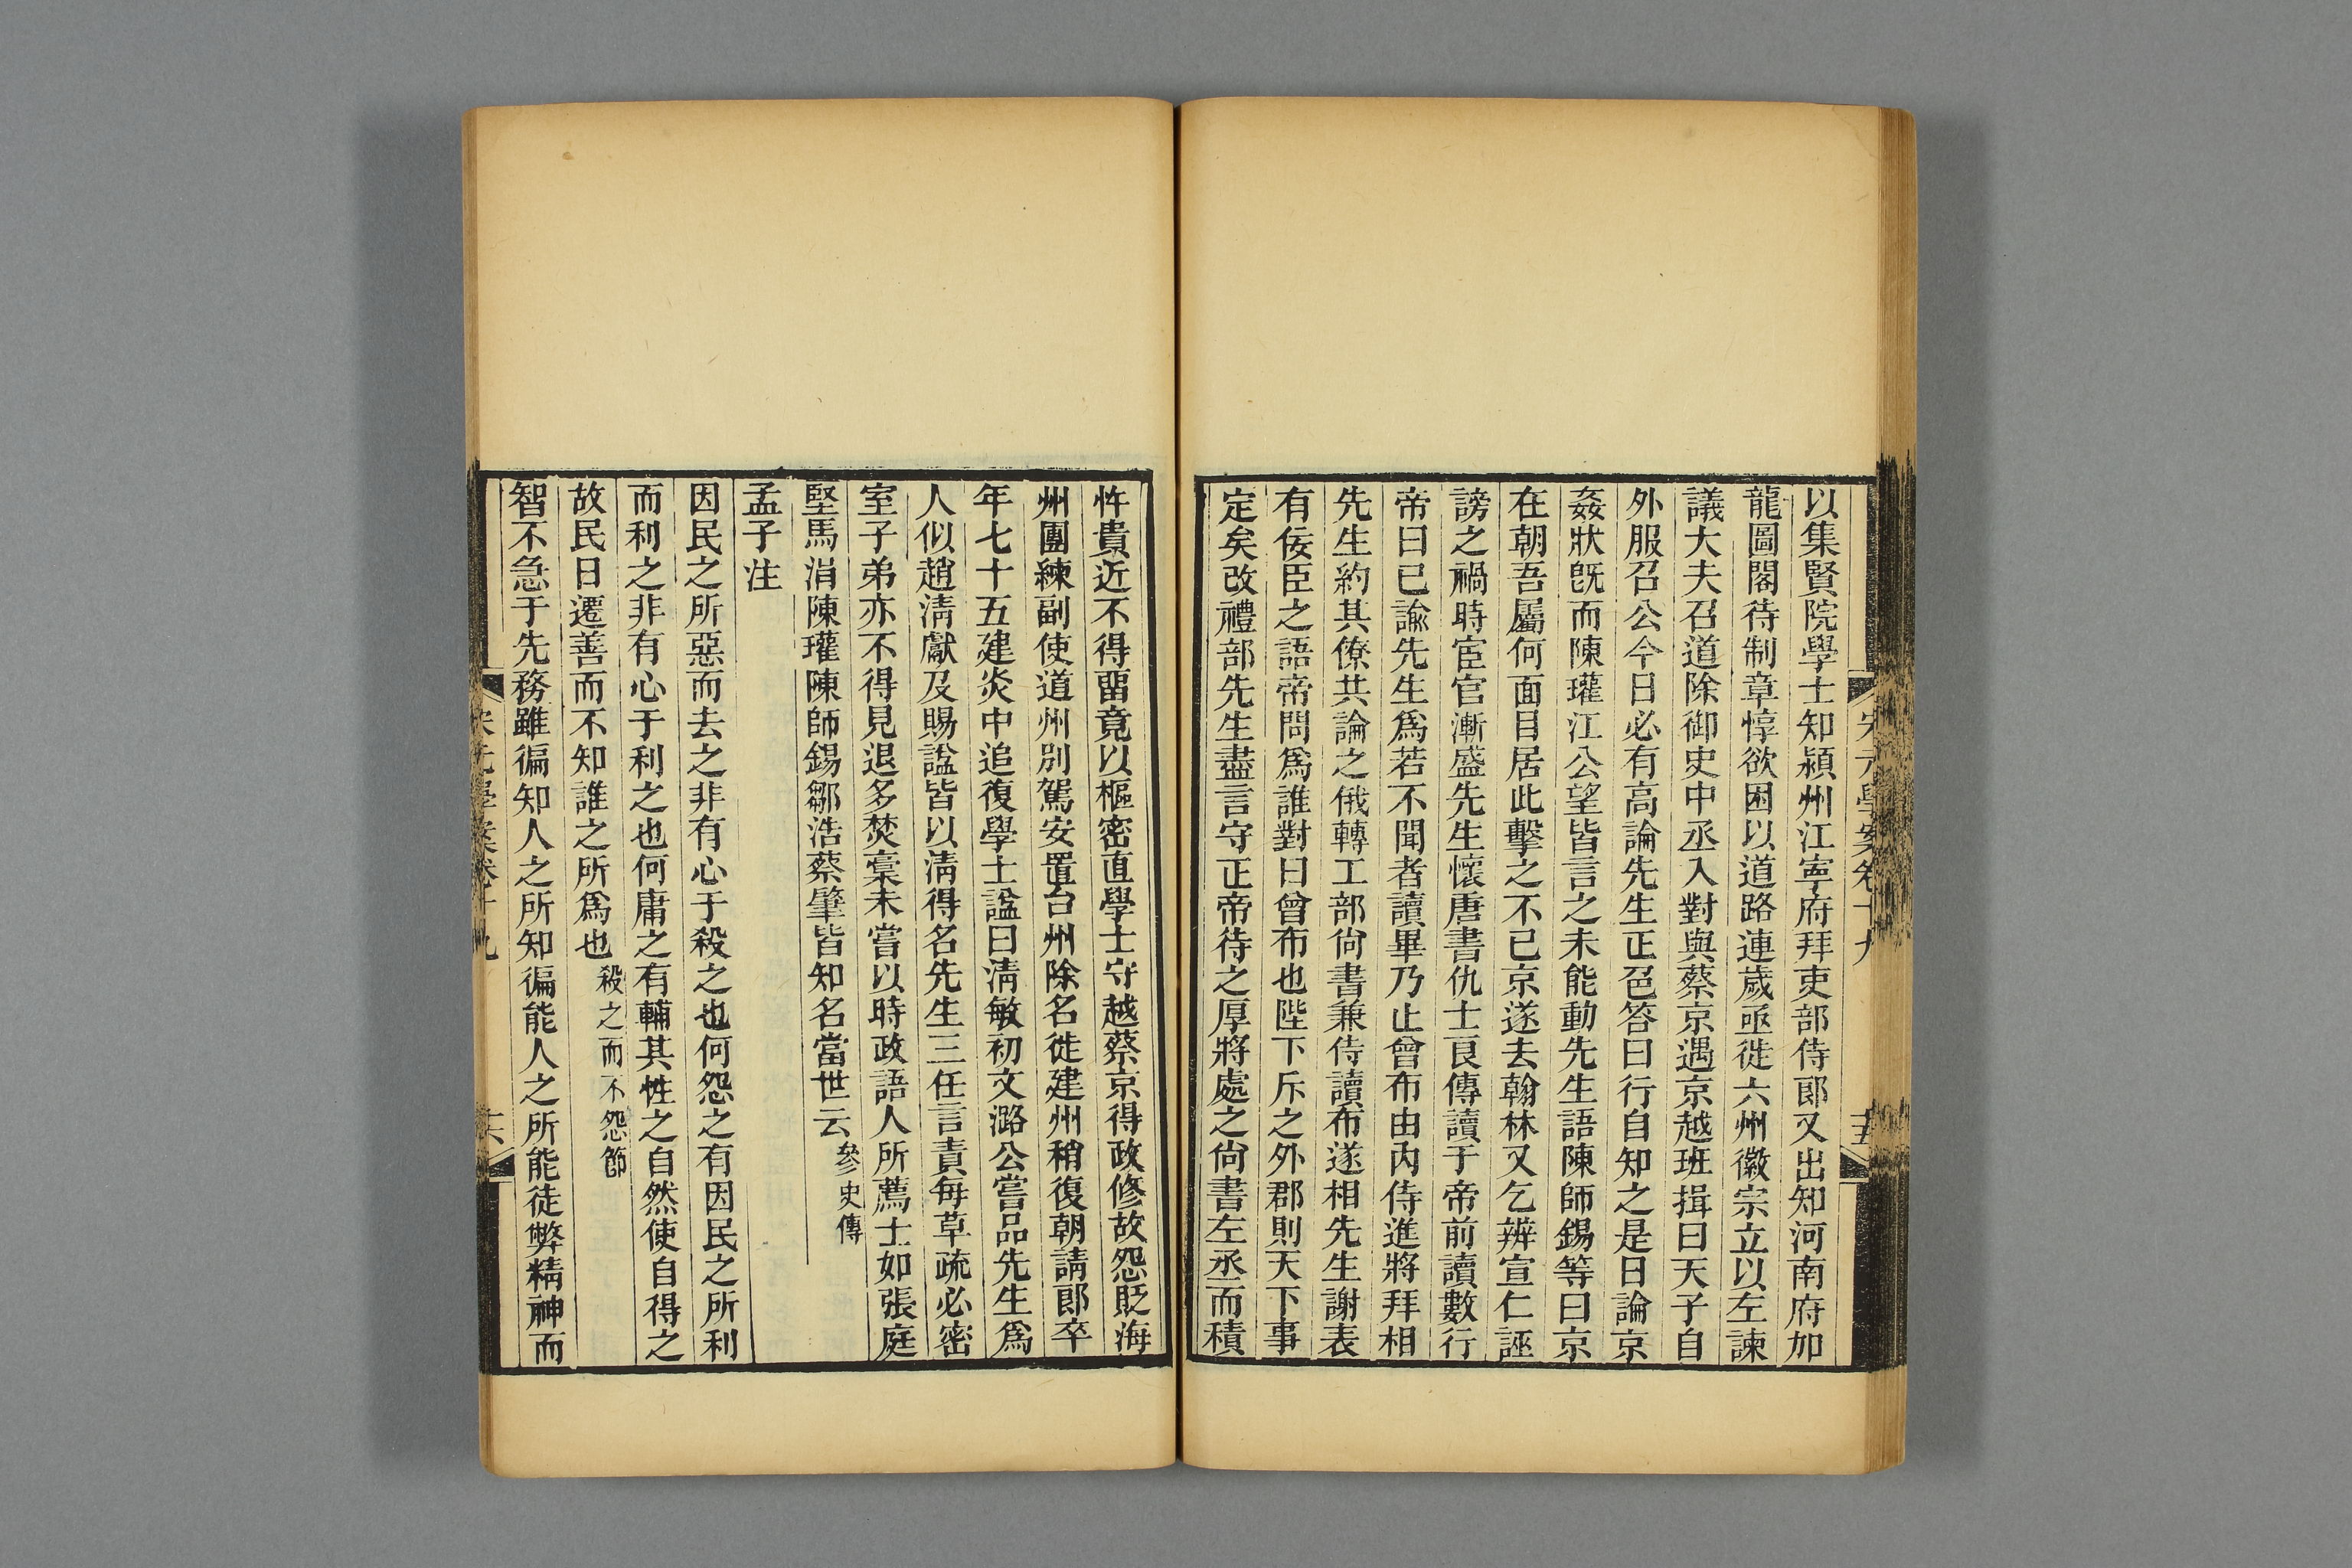 宋元學案卷十九
十五
以集賢院學士知潁州江寧府拜吏部侍郎又出知河南府加
龍圖閣待制章惇欲困以道路連歲亟徙六州徽宗立以左諫
議大夫召道除御史中丞入對與蔡京遇京越班揖曰天子自
外服召公今日必有高論先生正色答曰行自知之是日論京
姦狀旣而陳瓘江公望皆言之未能動先生語陳師錫等曰京
在朝吾屬何面目居此擊之不已京遂去翰林又乞辨宣仁誣
謗之禍時宦官漸盛先生懷唐書仇士良傳讀于帝前讀數行
帝曰已諭先生爲若不聞者讀畢乃止曾布由内侍進將拜相
先生約其僚共論之俄轉工部尙書兼侍讀布遂相先生謝表
有佞臣之語帝問爲誰對曰曾布也陛下斥之外郡則天下事
定矣改禮部先生盡言守正帝待之厚將處之尙書左丞而積
忤貴近不得畱竟以樞密直學士守越蔡京得政修故怨貶海
州團練副使道州別駕安置台州除名徙建州稍復朝請郎卒
年七十五建炎中追復學士諡曰淸敏初文潞公嘗品先生爲
人似趙淸獻及賜諡皆以淸得名先生三任言責每草疏必密
室子弟亦不得見退多焚稾未嘗以時政語人所薦士如張庭
堅馬涓陳瓘陳師錫鄒浩蔡肇皆知名當世云參史傳
孟子注
因民之所惡而去之非有心于殺之也何怨之有因民之所利
而利之非有心于利之也何庸之有輔其性之自然使自得之
故民日遷善而不知誰之所爲也殺之而不怨節
智不急于先務雖徧知人之所知徧能人之所能徒弊精神而
宋元學案卷十九
十六